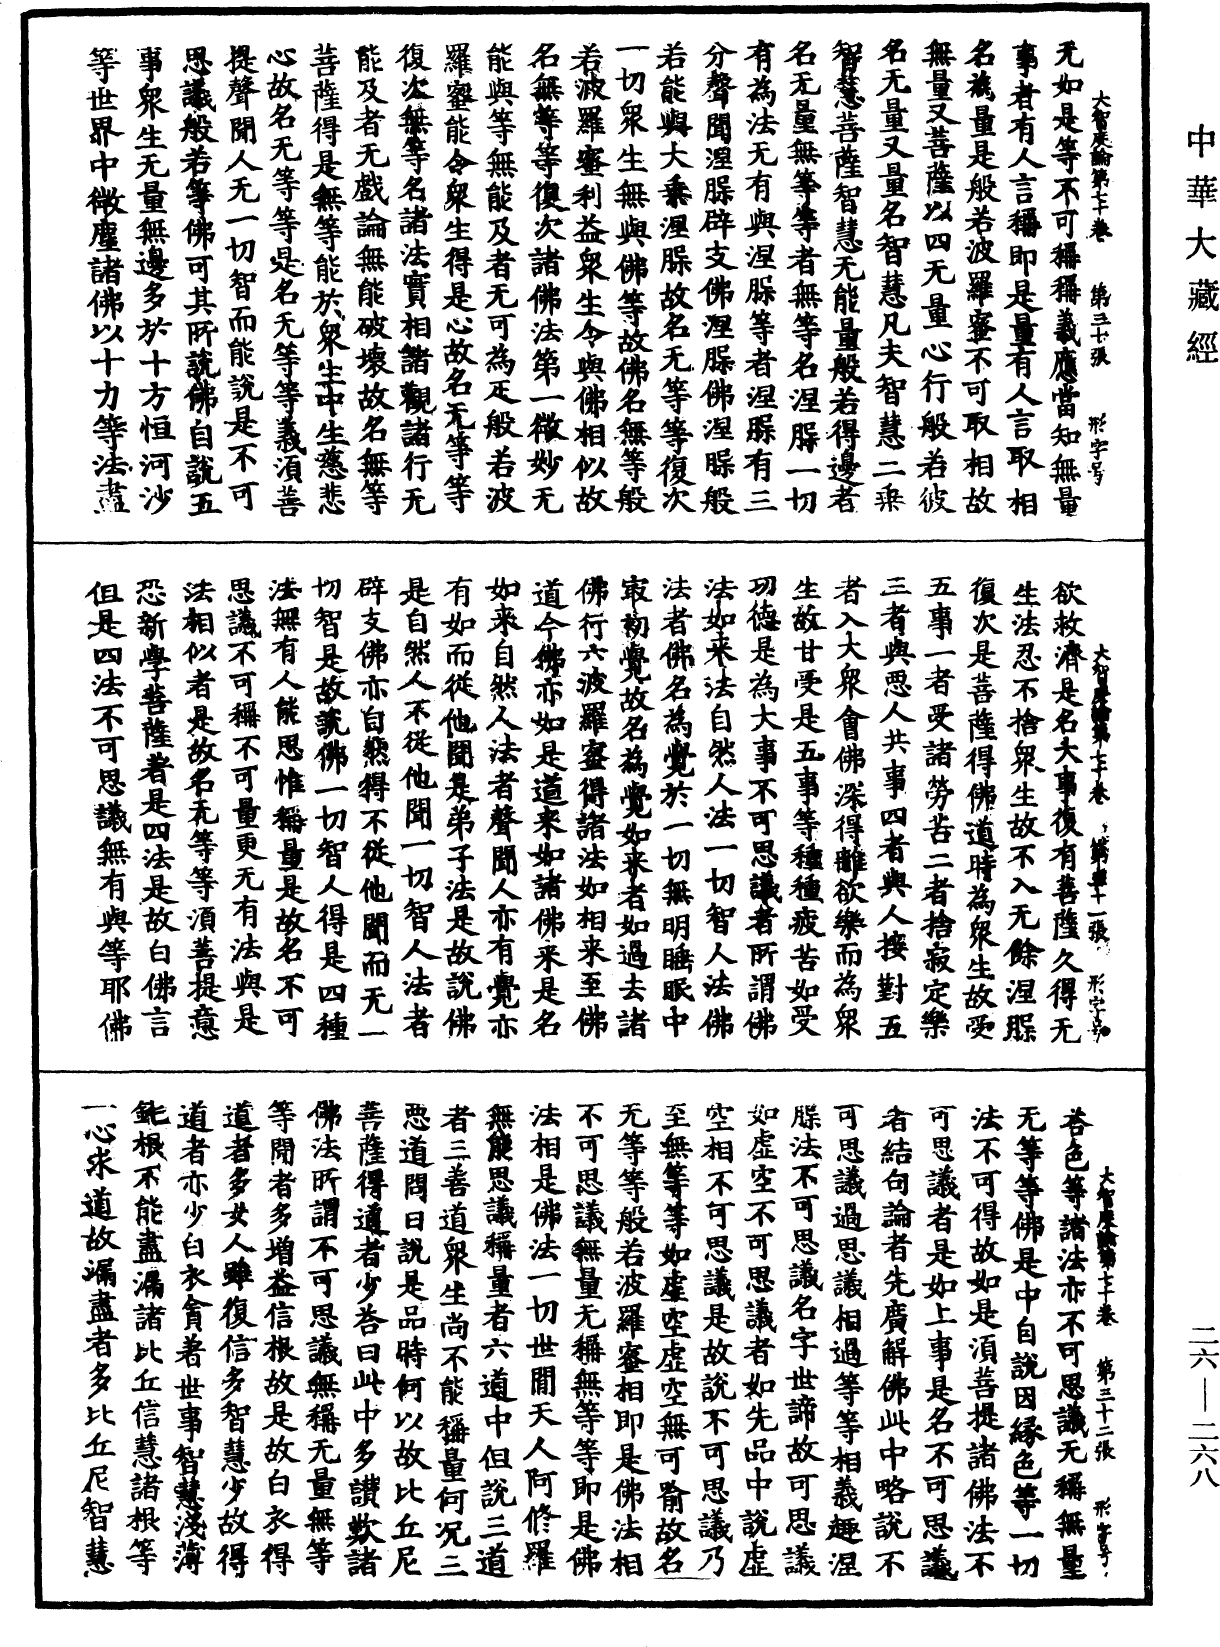 中華大藏經
大智度論第七十卷 第三十張 形字号
无如是等不可稱稱義應當知無量
事者有人言稱即是量有人言取相
名為量是般若波羅蜜不可取相故
無量又菩薩以四无量心行般若彼
名无量又量名智慧凡夫智慧二乘
智慧菩薩智慧无能量般若得邊者
名无量無等等者無等名涅脲一切
有為法无有與涅脲等者涅脲有三
分聲聞涅脲辟支佛涅脲佛涅脲般
若能與大乗涅脲故名无等等復次
一切衆生無與佛等故佛名無等般
若波羅蜜利益衆生令與佛相似故
名無等等復次諸佛法第一微妙无
能與等無能及者无可為疋般若波
羅蜜能令衆生得是心故名无等等
復次無等名諸法實相諸觀諸行无
能及者无戲論無能破壞故名無等
菩薩得是無等能於衆生中生慈悲
心故名无等等是名无等等義湏善
提聲聞人无一切智而能說是不可
思議般若等佛可其所說佛自說五
事衆生无量無邊多於十方恒河沙
等世界中微塵諸佛以十力等法盡
大智度論第七十卷 第三十一張 形字号
欲救濟是名大事復有菩薩久得无
生法忍不捨衆生故不入无餘涅脲
復次是菩薩得佛道時為衆生故受
五事一者受諸勞苦二者捨寂定樂
三者與惡人共事四者與人接對五
者入大衆會佛深得離欲樂而為衆
生故甘受是五事等種種疲苦如受
功德是為大事不可思議者所謂佛
法如来法自然人法一切智人法佛
法者佛名為覺於一切無明睡眠中
冣初覺故名為覺如来者如過去諸
佛行六波羅蜜得諸法如相来至佛
道今佛亦如是道来如諸佛来是名
如来自然人法者聲聞人亦有覺亦
有如而從他聞是弟子法是故說佛
是自然人不從他聞一切智人法者
辟支佛亦自然得不從他聞而无一
切智是故說佛一切智人得是四種
法無有人能思惟稱量是故名不可
思議不可稱不可量更无有法與是
法相似者是故名无等等湏菩提意
恐新學菩薩著是四法是故白佛言
但是四法不可思議無有與等耶佛
大智度論第七十卷 第三十二張 形字号
荅色等諸法亦不可思議无稱無量
无等等佛是中自說因緣色等一切
法不可得故如是湏菩提諸佛法不
可思議者是如上事是名不可思議
者結句論者先廣解佛此中略說不
可思議過思議相過等等相義趣涅
脲法不可思議名字世諦故可思議
如虛空不可思議者如先品中說虛
空相不可思議是故說不可思議乃
至無等等如虛空虛空無可喻故名
无等等般若波羅蜜相即是佛法相
不可思議無量无稱無等等即是佛
法相是佛法一切世間天人阿修羅
無能思議稱量者六道中但說三道
者三善道衆生尚不能稱量何況三
惡道問曰說是品時何以故比丘尼
菩薩得道者少荅曰此中多讃歎諸
佛法所謂不可思議無稱无量無等
等聞者多增益信根故是故白衣得
道者多女人雖復信多智慧少故得
道者亦少白衣貪著世事智慧淺薄
鈍根不能盡漏諸比丘信慧諸根等
一心求道故漏盡者多比丘尼智慧
二六—二六八